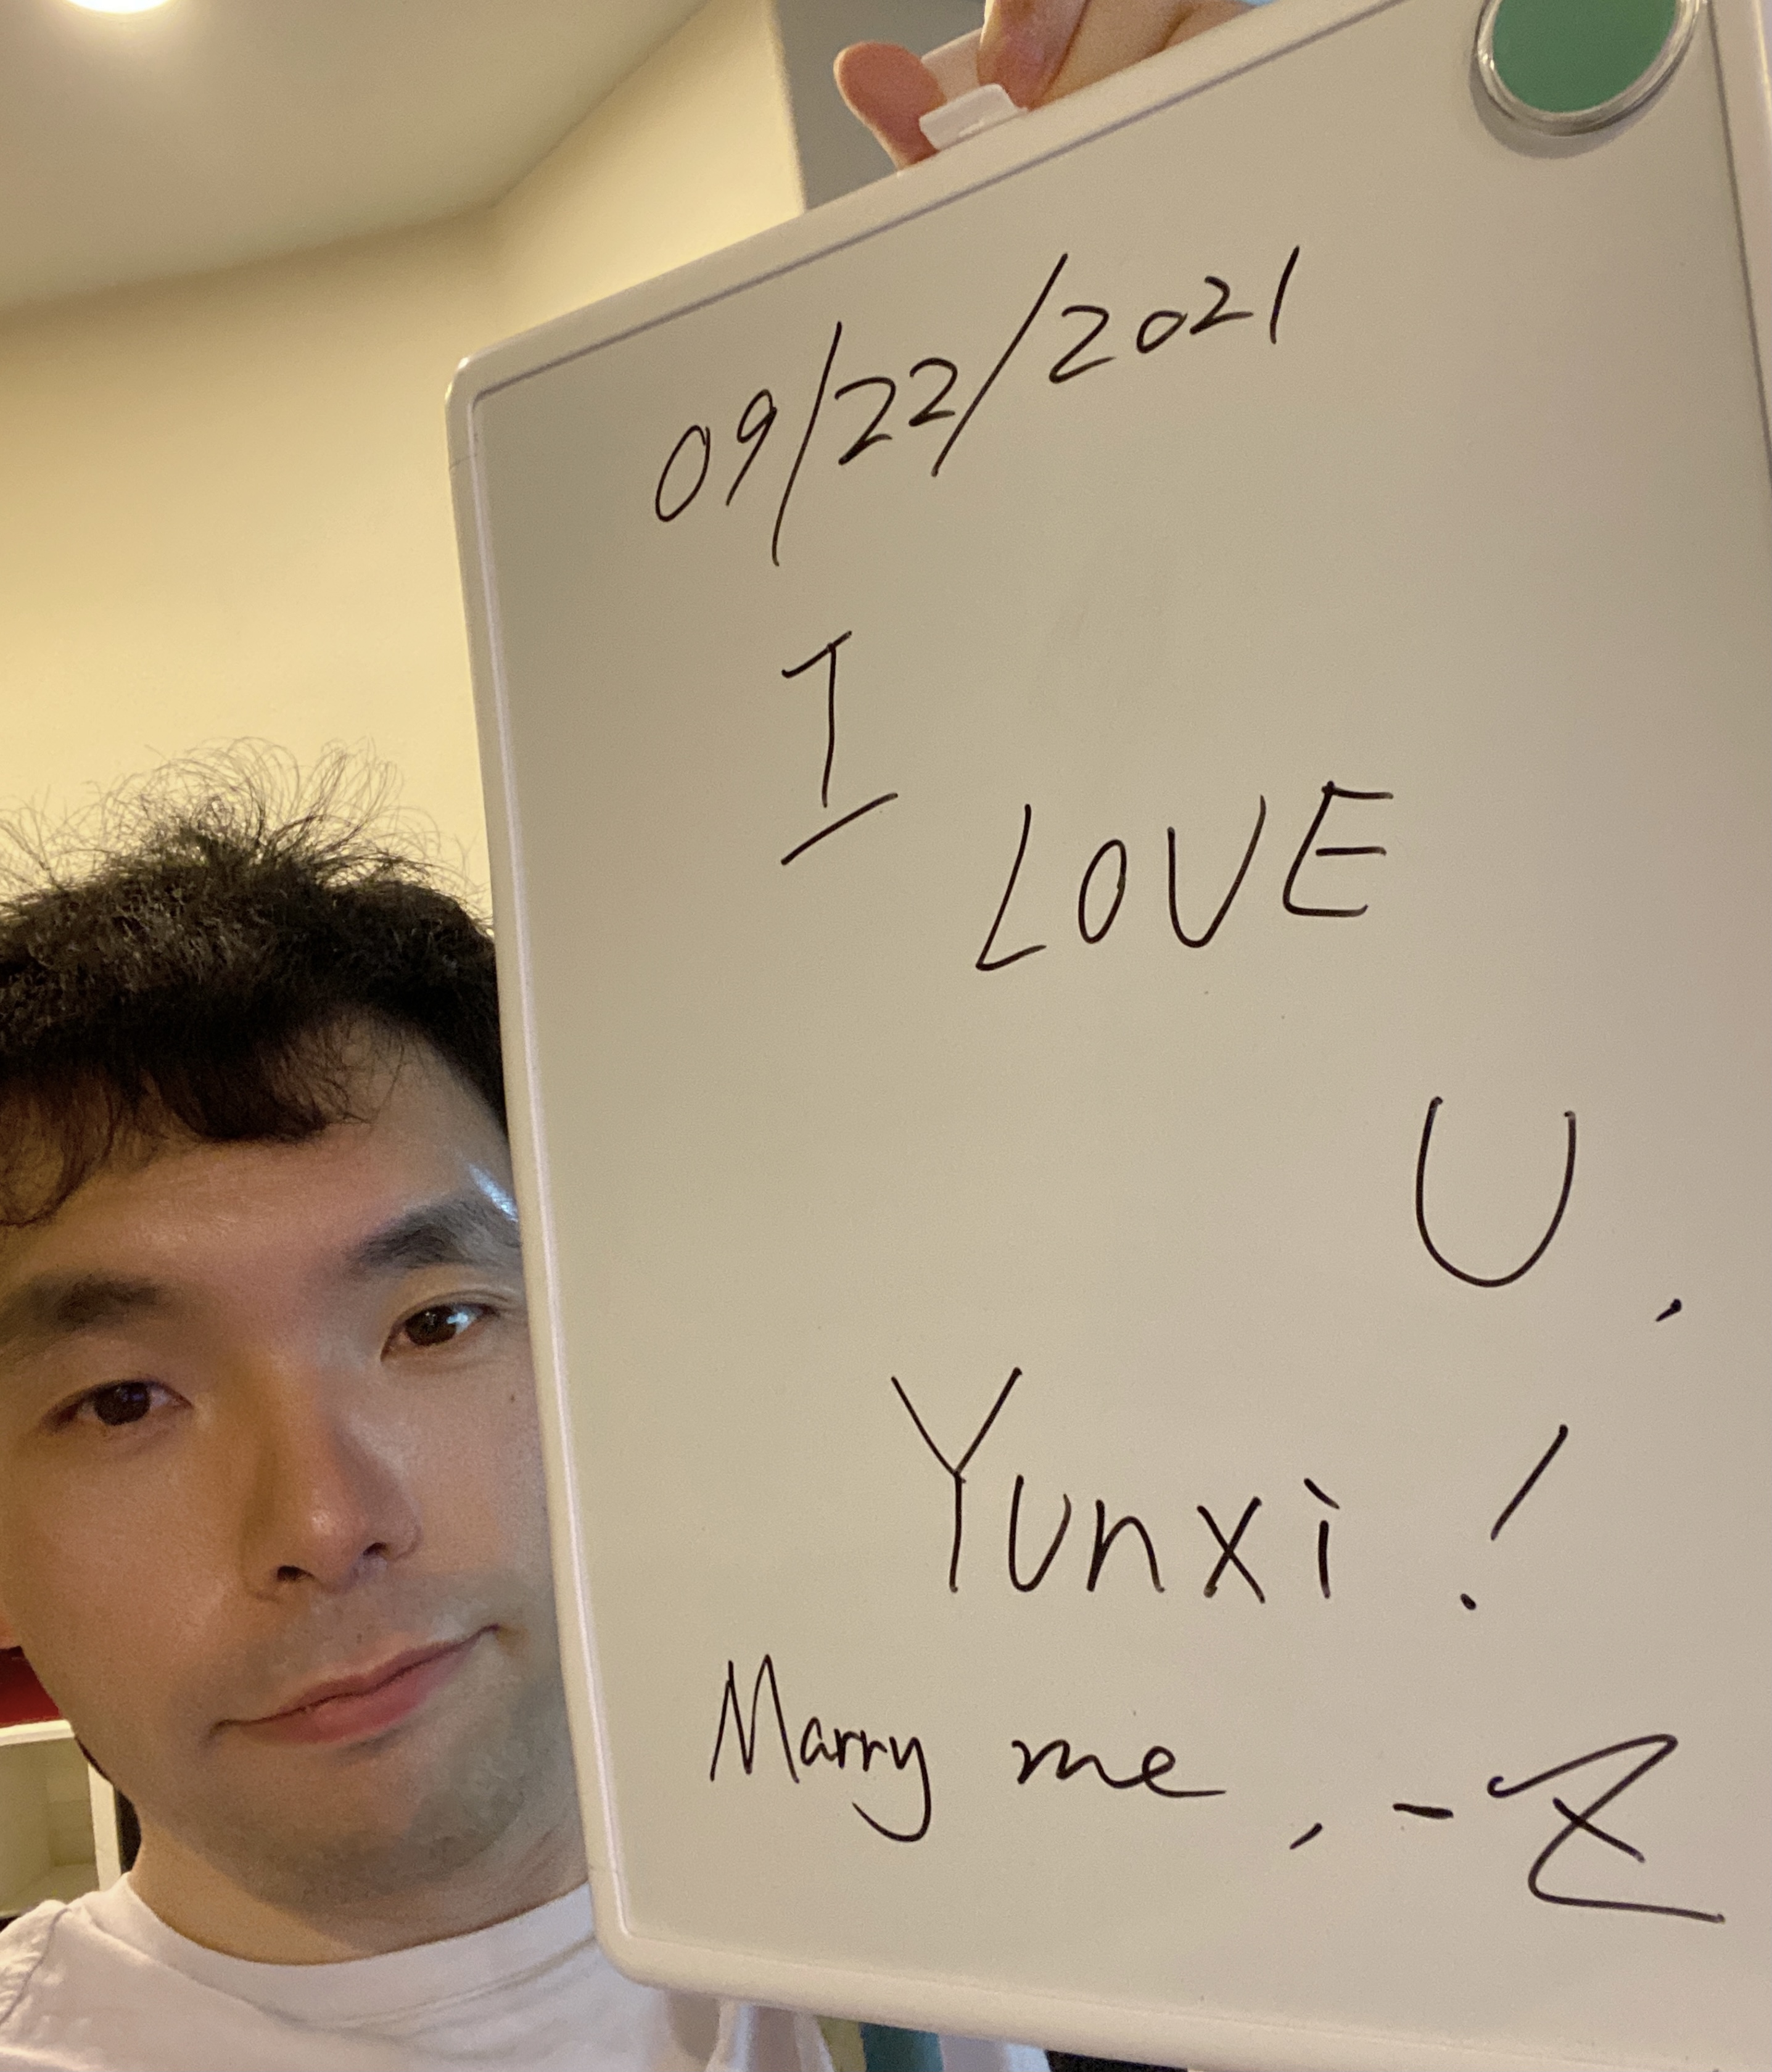 09/22/2021
I
LOVE
U.
Yunxi!
Marry me, -Z